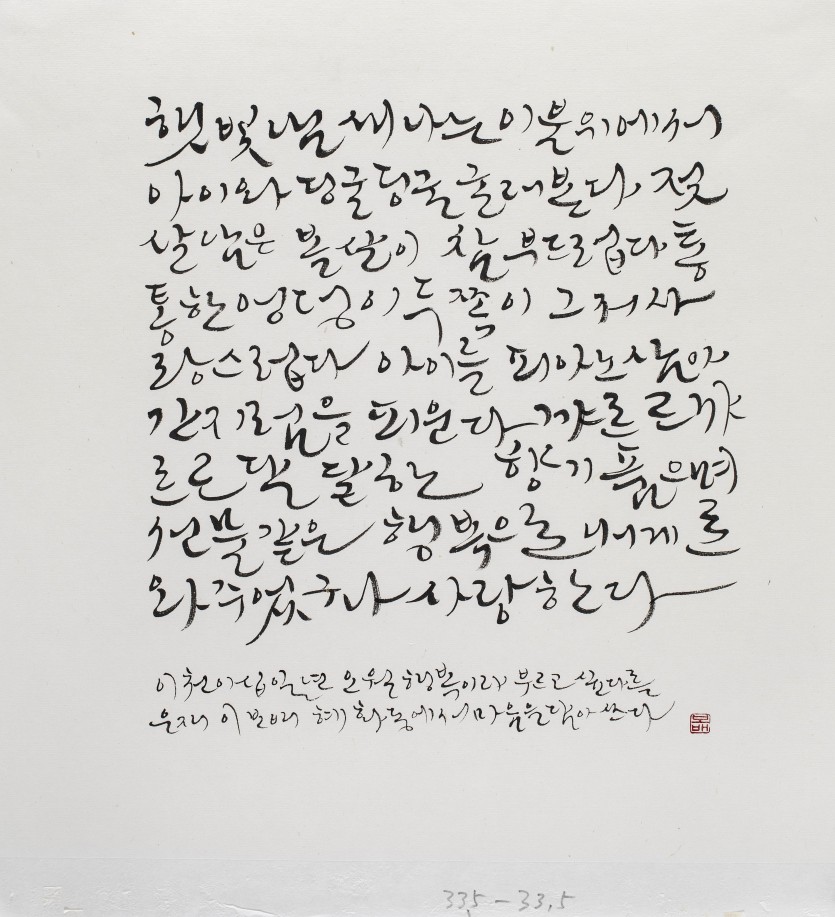 햇빛 냄새 나는 이불 위에서
아이와 뒹굴뒹굴 굴러본다. 젖
살 남은 볼살이 참 부드럽다 통
통한 엉덩이 두 쪽이 그저 사
랑스럽다 아이를 피아노 삼아
간지럼을 피운다 꺄르르 꺄
르르 달달한 향기 품으며
선물같은 행복으로 내게로
와 주었구나 사랑한다
이천이십일년 오월 행복이라 부르고 싶은
혜화동에서 마음을 담아 쓰다
335-33.5